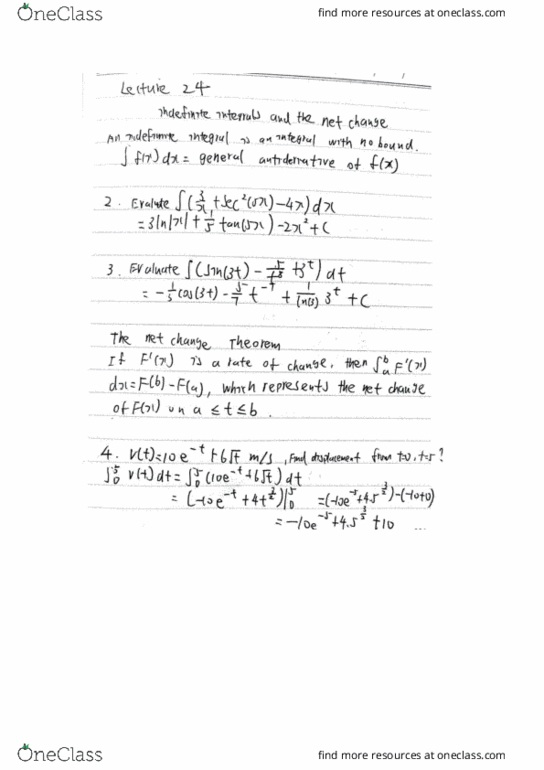 OneClass
find more resources at oneclass.com
Lecture 24
indefinite intervals and the net change
An indefinite integral is an integral with no bound.
∫ f(x) dx = general antiderivative of f(x)
2. Evaluate ∫(3/x + sec²(5x) - 4x) dx
= 3 ln|x| + 1/5 tan(5x) - 2x² + C
3. Evaluate ∫(sin(3t) - 5/t⁸ + 3ᵗ) dt
= - 1/3 cos(3t) - 5/7 t⁻⁷ + 1/ln(3) 3ᵗ + C
The net change Theorem
If F'(x) is a rate of change, then ∫ₐᵇ F'(x)
dx = F(b) - F(a), which represents the net change
of F(x) on a ≤ t ≤ b.
4. v(t) = 10e⁻ᵗ + 6√t m/s, Find displacement from t=0, t=5?
∫₀⁵ v(t) dt = ∫₀⁵ (10e⁻ᵗ + 6√t) dt
= (-10e⁻ᵗ + 4t^(3/2))|₀⁵ = (-10e⁻⁵ + 4.5^(3/2)) - (-10+0)
= -10e⁻⁵ + 4.5^(3/2) + 10 ...
OneClass
find more resources at oneclass.com